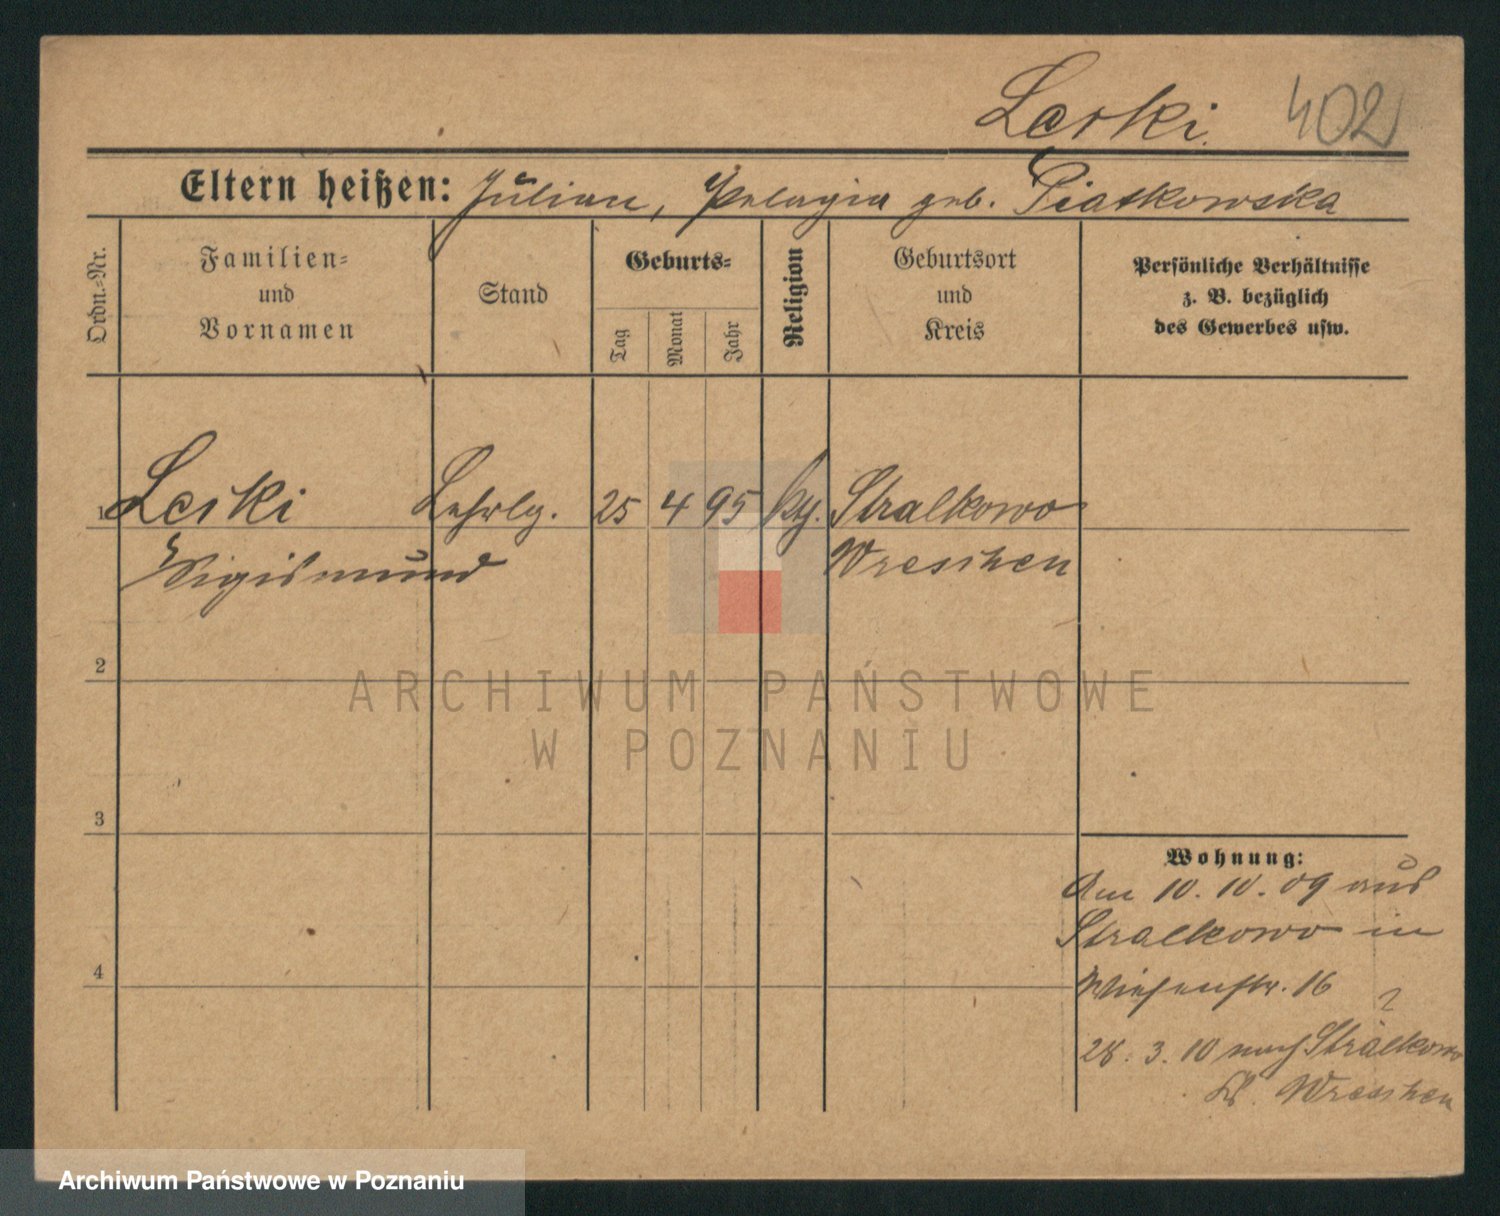 Leski 402
Eltern heißen: Julian, Pelagia geb. Piatkowska
Ordn.-Nr.
Familien=
und
Vornamen
Stand
Geburts=
Tag
Monat
Jahr
Religion
Geburtsort
und
Kreis
Persönliche Verhältnisse
z. B. bezüglich
des Gewerbes usw.
1 Leski Lehrlg. 25 4 95 kth. Stralkowo
Sigismund Wreschen
2
ARCHIWUM PAŃSTWOWE
W POZNANIU
3
Wohnung:
Am 10. 10. 09 aus
Stralkowo in
4
Wiesenstr. 16
28. 3. 10 nach Stralkowo
Kr. Wreschen
Archiwum Państwowe w Poznaniu